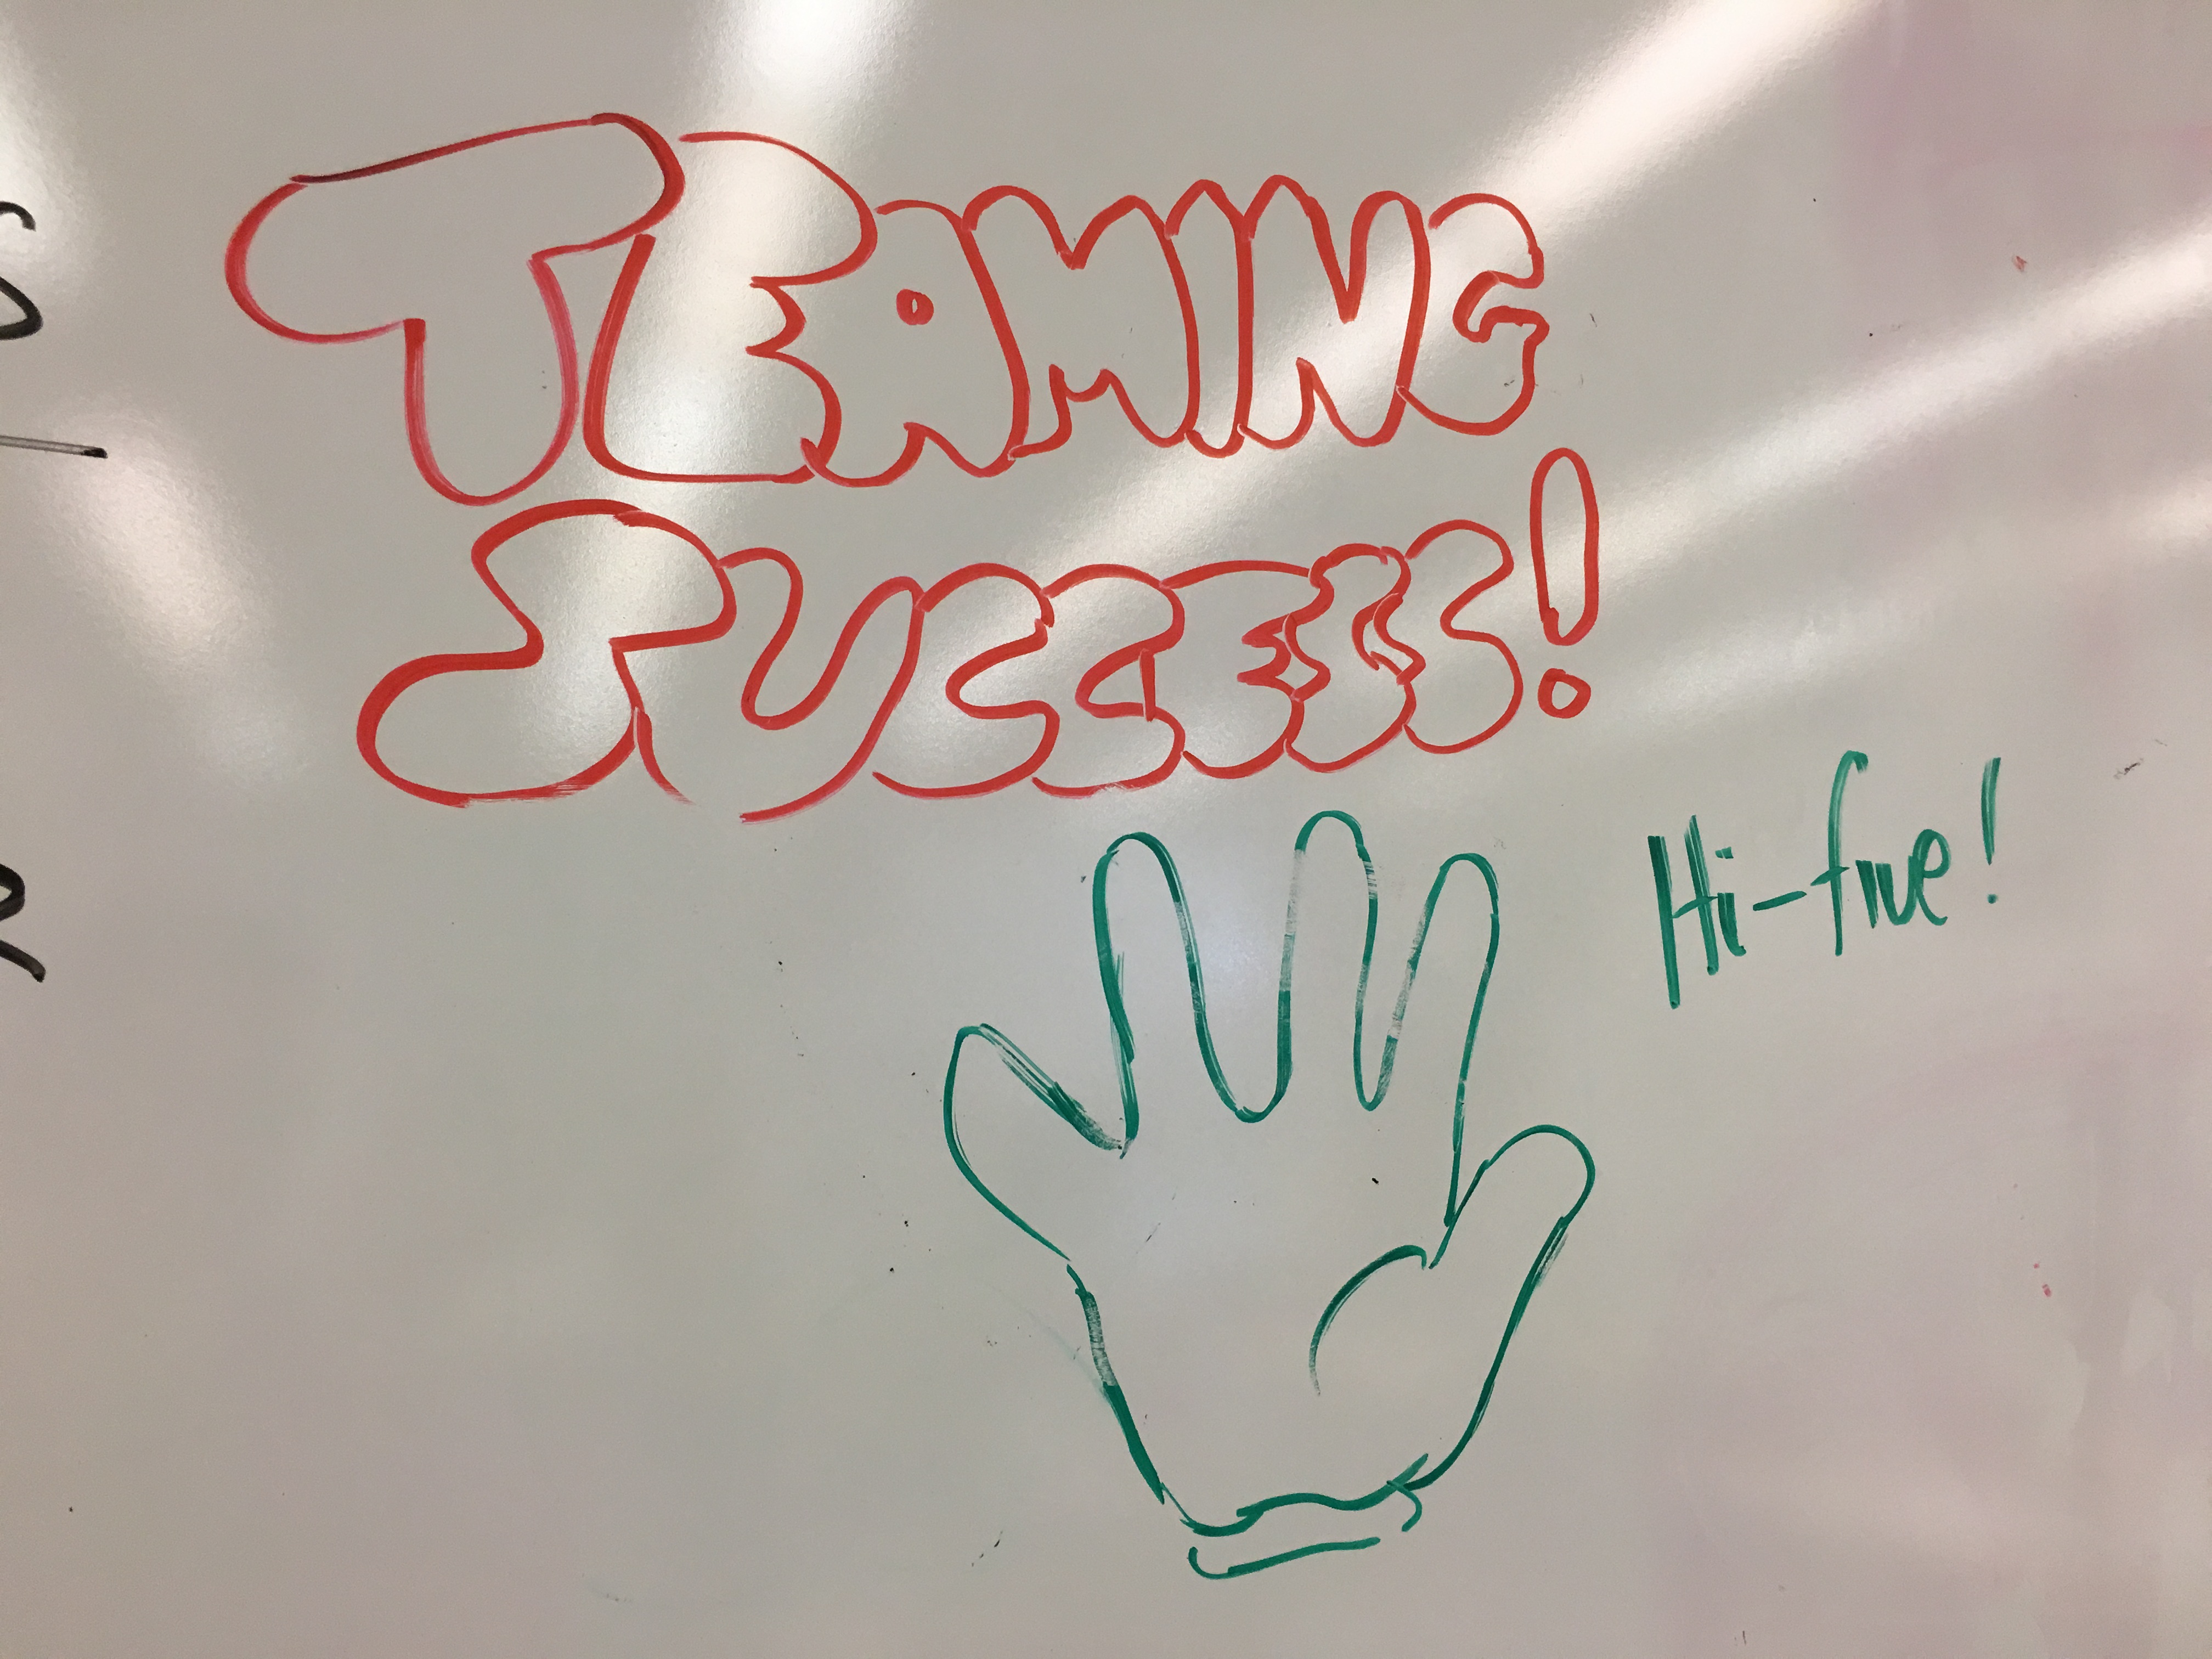 TEAMING
SUCCESS!
Hi-five!